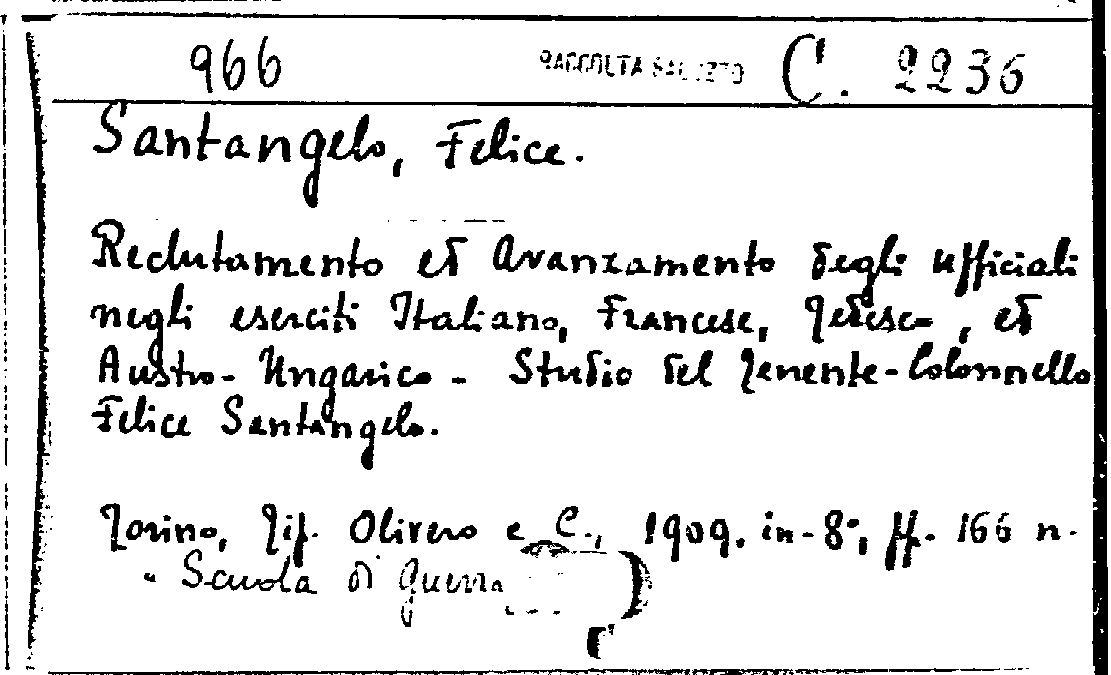 966 RACCOLTA SALUZZO C. 2236
Santangelo, Felice.
Reclutamento ed Avanzamento degli ufficiali
negli eserciti Italiano, Francese, Tedesco, ed
Austro-Ungarico - Studio del Tenente-Colonnello
Felice Santangelo.
Torino, Tip. Olivero e C., 1909. in-8°, pp. 166 n.
" Scuola di guerra